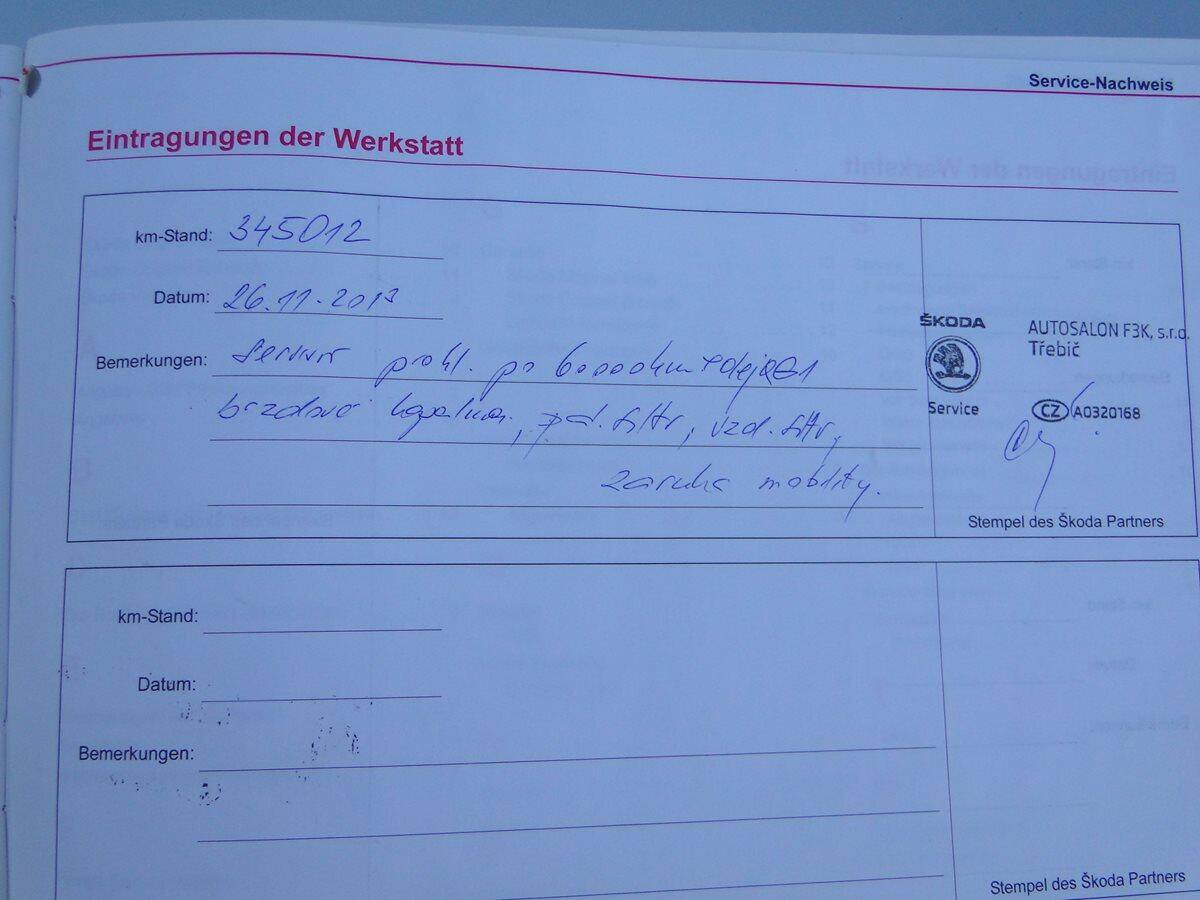 Service-Nachweis
Eintragungen der Werkstatt
km-Stand: 345012
Datum: 26.11.2013
Bemerkungen: servisní prohl. po 60000km
brzdová kapalina, filtr, vzd. filtr,
záruka mobility.
ŠKODA
Service
AUTOSALON F3K, s.r.o.
Třebíč
CZ A0320168
Stempel des Škoda Partners
km-Stand:
Datum:
Bemerkungen:
Stempel des Škoda Partners